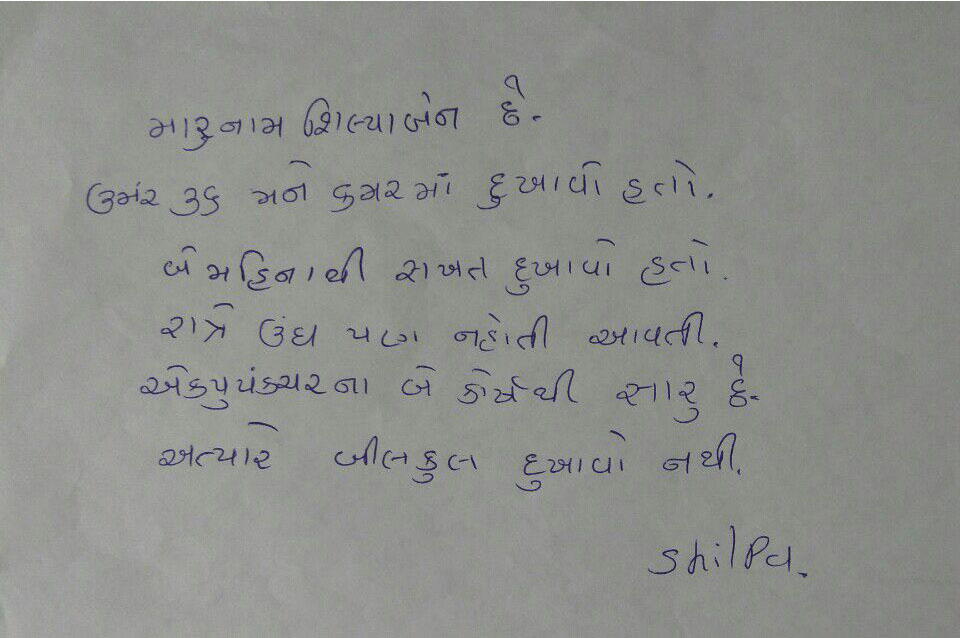 મારુ નામ શિલ્પાબેન છે.
ઉમંર ૩૬ મને કમરમાં દુખાવો હતો.
બે મહિનાથી સખત દુખાવો હતો.
રાત્રે ઉંઘ પણ નહોતી આવતી.
એકયુપંક્ચરના બે કોર્ષથી સારુ છે.
અત્યારે બીલકુલ દુખાવો નથી.
Shilpa.